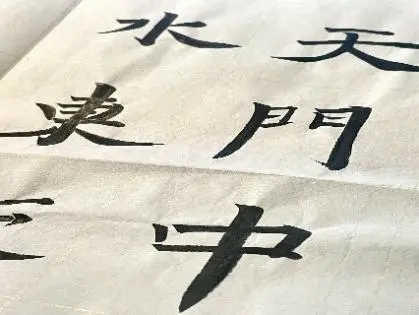 天門中
水東